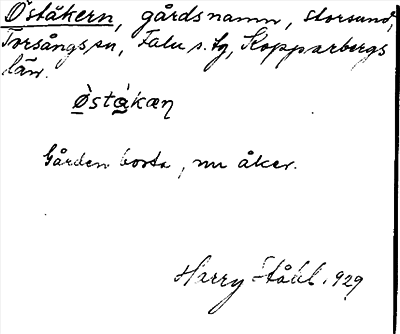 Öståkern, gårdsnamn, Storsund,
Torsångs sn, Falu s. tg, Kopparbergs
län.
Gården borta, nu åker.
Harry Ståhl. 1929